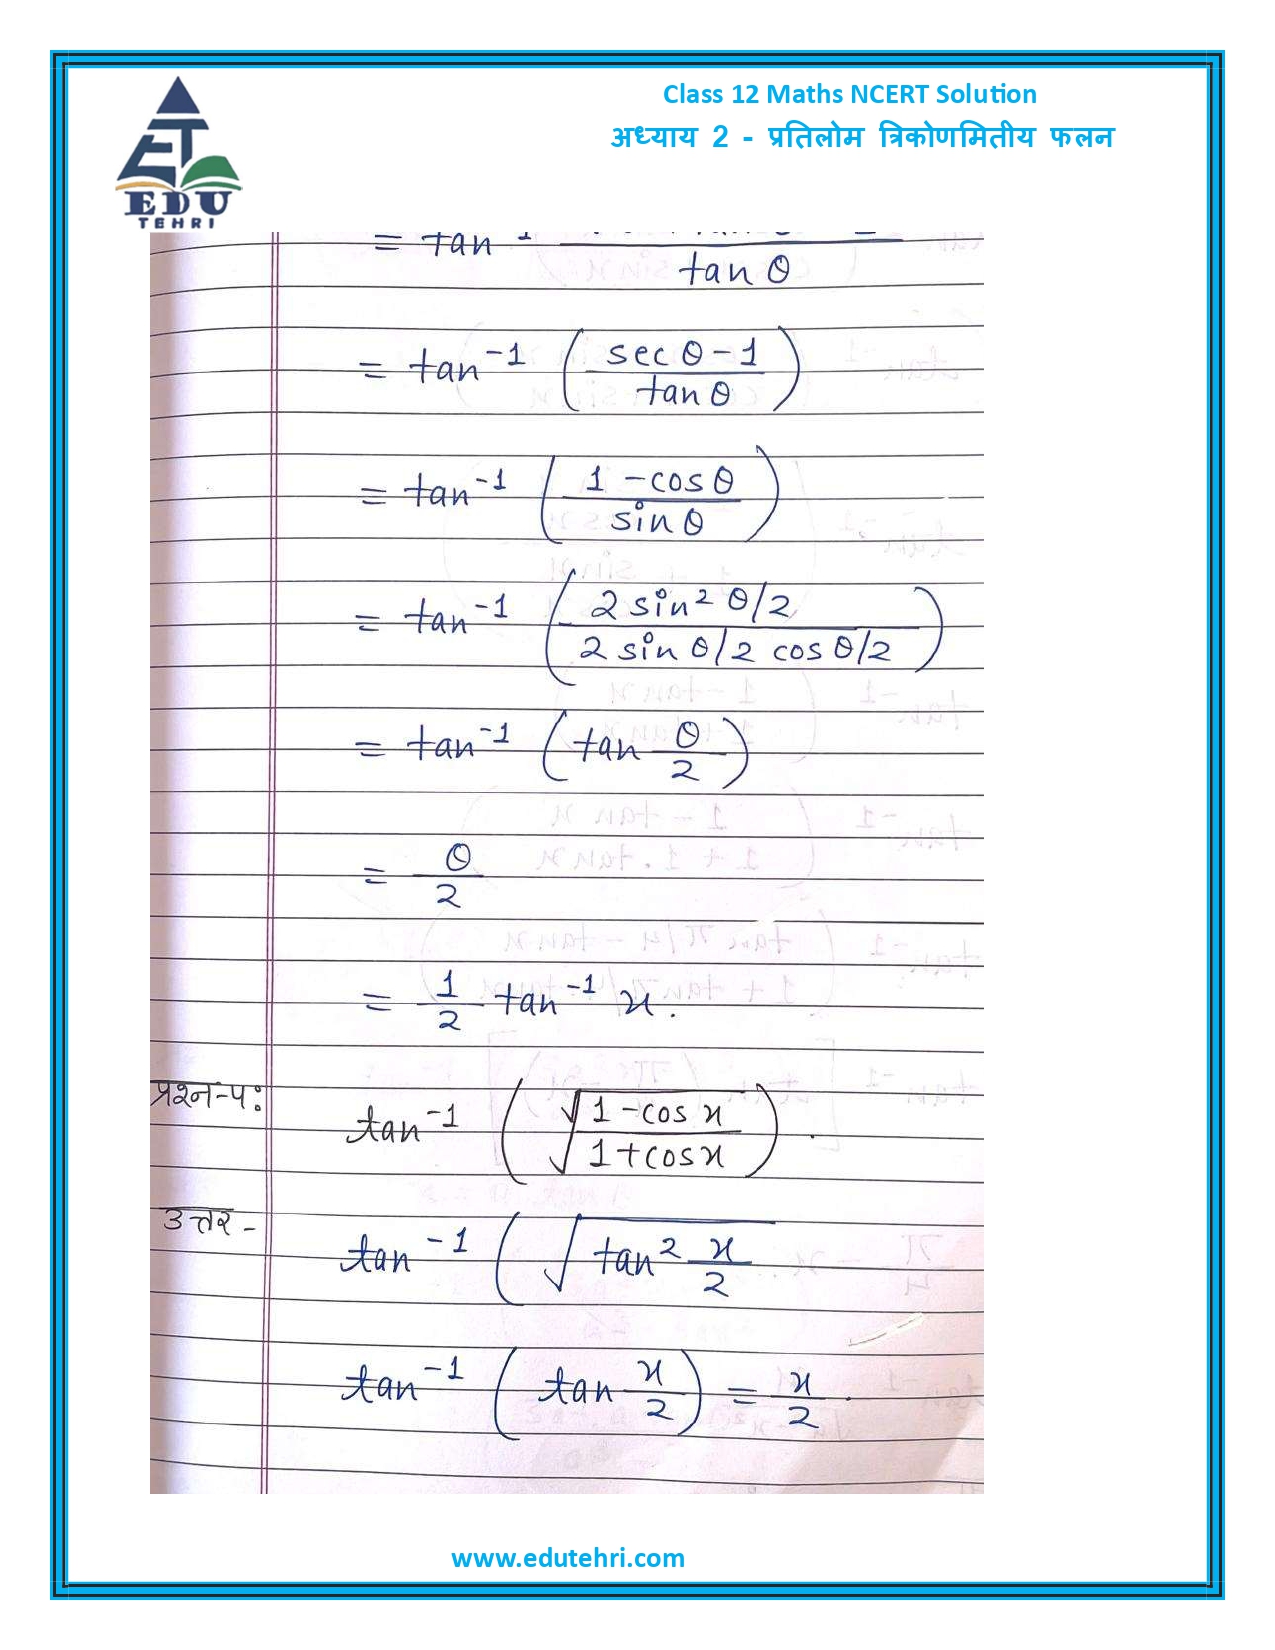 Class 12 Maths NCERT Solution
अध्याय 2 - प्रतिलोम त्रिकोणमितीय फलन
EDU
TEHRI
= tan⁻¹
tan θ
= tan⁻¹ ( (sec θ - 1) / (tan θ) )
= tan⁻¹ ( (1 - cos θ) / (sin θ) )
= tan⁻¹ ( (2 sin² θ/2) / (2 sin θ/2 cos θ/2) )
= tan⁻¹ ( tan θ/2 )
= θ/2
= 1/2 tan⁻¹ x .
प्रश्न-५: tan⁻¹ ( √((1 - cos x) / (1 + cos x)) ) .
उत्तर - tan⁻¹ ( √(tan² x/2)
tan⁻¹ ( tan x/2 ) = x/2 .
www.edutehri.com